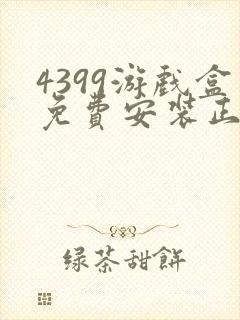 4399游戏盒
免費安装正
绿茶甜餅